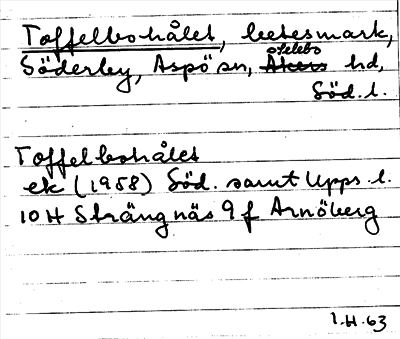 Toffelbohålet, betesmark,
Söderby, Aspö sn, Åkers Selebo hd,
Söd. l.
Toffelbohålet
ek (1958) Söd. samt Upps. l.
10 H Strängnäs 9 f Arnöberg
1.H.63